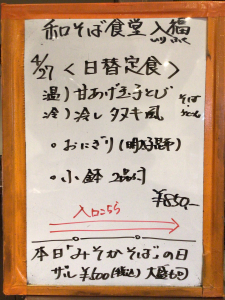 和そば食堂 入福
いり ふく
4/27 <日替定食>
温) 甘あげ玉子とじ
冷) 冷しタヌキ風
そば
うどん
・おにぎり(明太昆布)
・小鉢 2品付
¥850-
入口こちら
本日「みそかそば」の日
ザル ¥500(税込) 大盛も〇